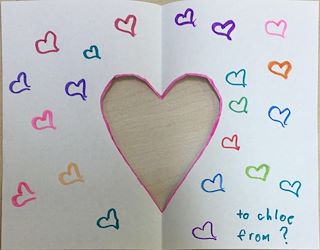 to chloe
from ?